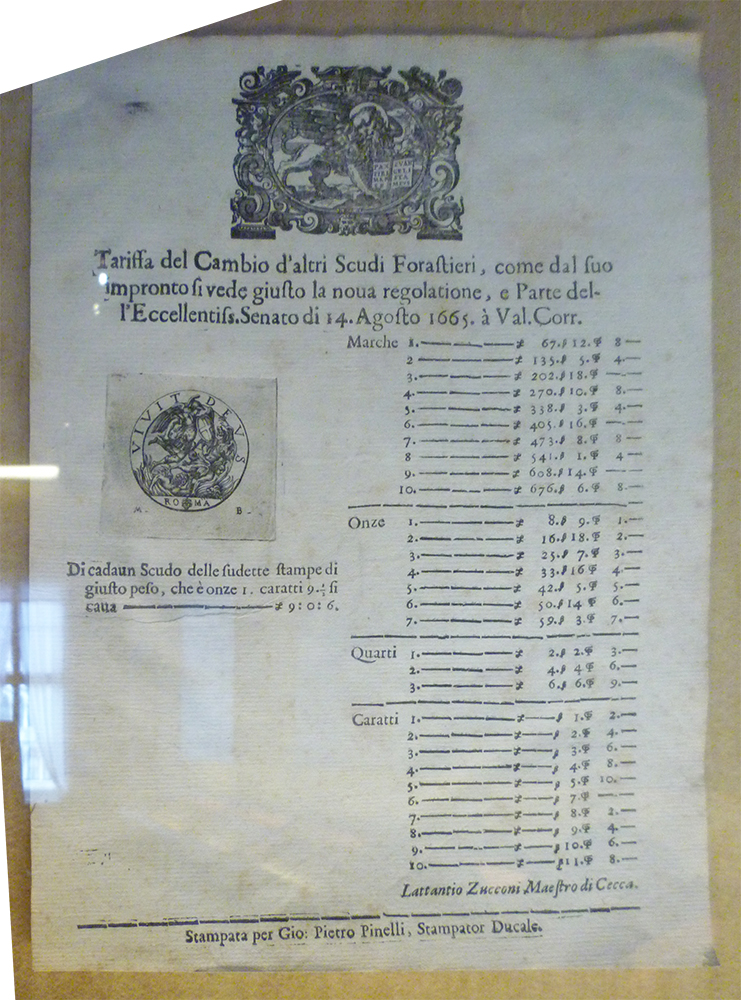 Tariffa del Cambio d'altri Scudi Forastieri, come dal suo
impronto si vede giusto la noua regolatione, e Parte del-
l'Eccellentiss. Senato di 14. Agosto 1665. à Val. Corr.
VIVIT DEVS
ROMA
M. B.
Di cadaun Scudo delle sudette stampe di
giusto peso, che è onze 1. caratti 9. si
caua — ₤ 9:0:6.
Marche 1. — ₤ 67. ß 12. ₰ 8 —
2 — ₤ 135. ß 5. ₰ 4. —
3. — ₤ 202. ß 18. ₰ —
4. — ₤ 270. ß 10. ₰ 8. —
5. — ₤ 338. ß 3. ₰ 4. —
6. — ₤ 405. ß 16. ₰ —
7. — ₤ 473. ß 8. ₰ 8 —
8 — ₤ 541. ß 1. ₰ 4 —
9. — ₤ 608. ß 14. ₰ —
10. — ₤ 676. ß 6. ₰ 8. —
Onze 1. — ₤ 8. ß 9. ₰ 1. —
2. — ₤ 16. ß 18. ₰ 2. —
3. — ₤ 25. ß 7. ₰ 3. —
4. — ₤ 33. ß 16 ₰ 4. —
5. — ₤ 42. ß 5. ₰ 5. —
6. — ₤ 50. ß 14 ₰ 6. —
7. — ₤ 59. ß 3. ₰ 7. —
Quarti 1. — ₤ 2. ß 2. ₰ 3. —
2. — ₤ 4. ß 4 ₰ 6. —
3. — ₤ 6. ß 6. ₰ 9. —
Caratti 1. — ₤ — ß 1. ₰ 2. —
2. — ₤ — ß 2. ₰ 4. —
3. — ₤ — ß 3. ₰ 6. —
4. — ₤ — ß 4. ₰ 8. —
5. — ₤ — ß 5. ₰ 10. —
6. — ₤ — ß 7. ₰ —
7. — ₤ — ß 8. ₰ 2. —
8. — ₤ — ß 9. ₰ 4. —
9. — ₤ — ß 10. ₰ 6. —
10. — ₤ — ß 11. ₰ 8. —
Lattantio Zucconi Maestro di Cecca.
Stampata per Gio: Pietro Pinelli, Stampator Ducale.